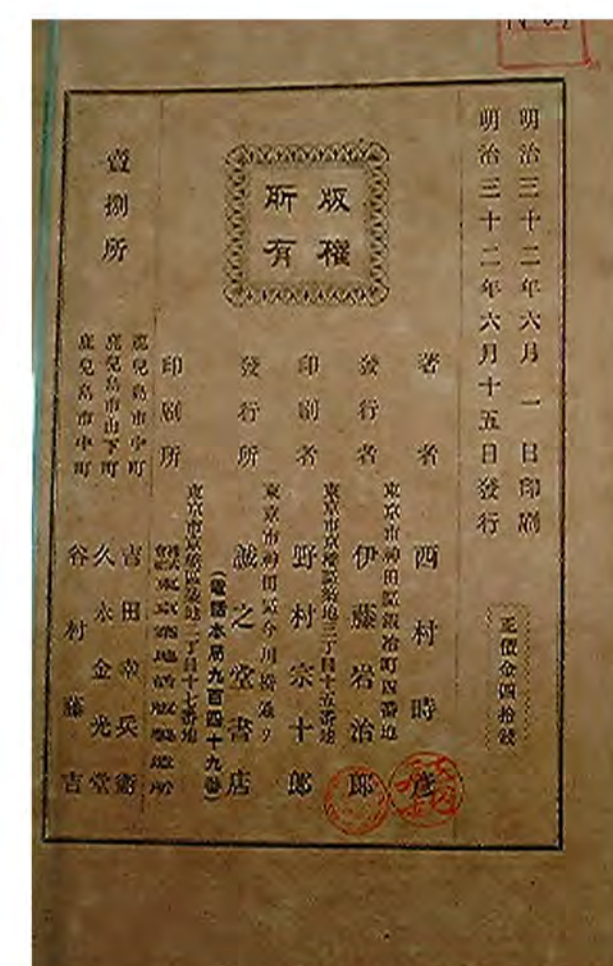 明治三十二年六月一日印刷
明治三十二年六月十五日發行
正價金四拾錢
著者 西村時彦
東京市神田區鍛冶町四番地
發行者 伊藤岩治郎
東京市京橋區築地三丁目十五番地
印刷者 野村宗十郎
東京市神田區今川橋通り
發行所 誠之堂書店
(電話本局九百四十九番)
東京市京橋區築地二丁目十七番地
印刷所 株式會社東京築地活版製造所
版權
所有
壹捌所
鹿兒島市中町 吉田幸兵衛
鹿兒島市山下町 久永金光堂
鹿兒島市中町 谷村藤吉